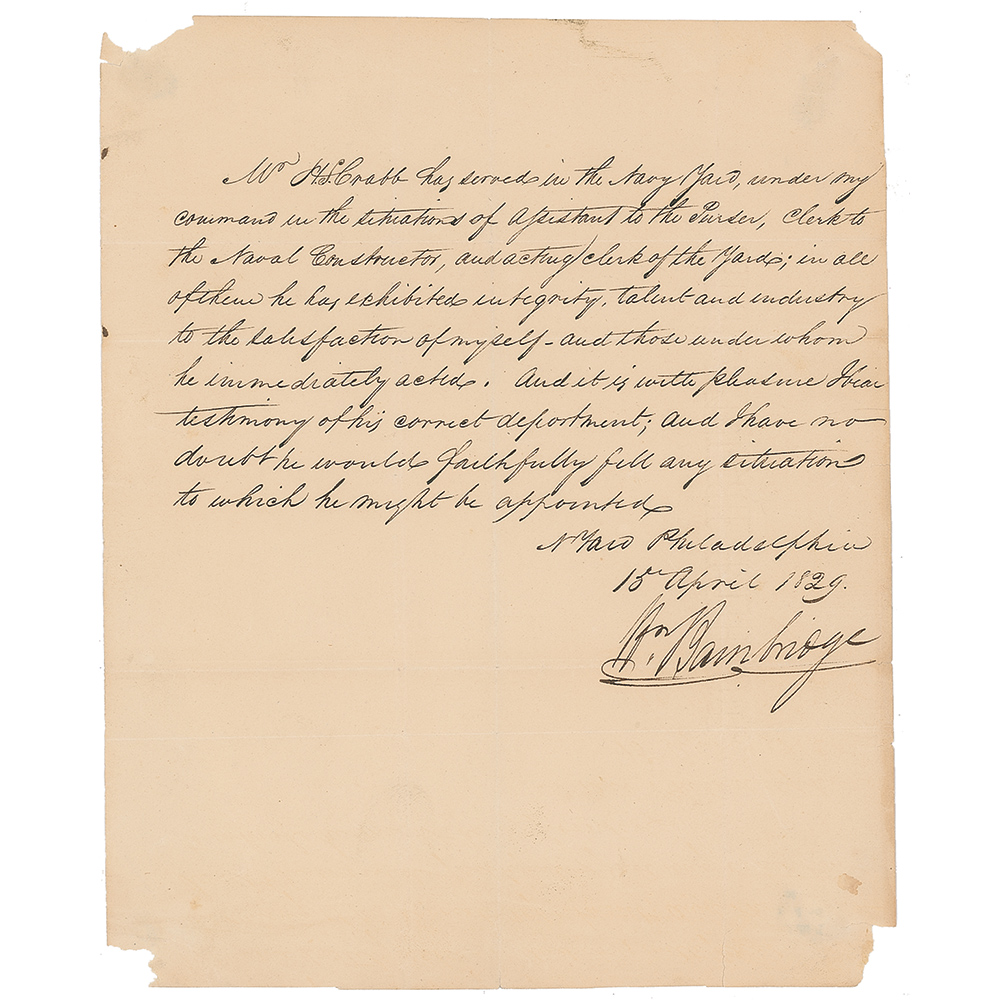 Mr H.S. Crabb has served in the Navy Yard, under my
command in the situations of Assistant to the Purser, Clerk to
the Naval Constructor, and acting clerk of the Yard; in all
of them he has exhibited integrity, talent and industry
to the satisfaction of myself - and those under whom
he immediately acted. And it is with pleasure I bear
testimony of his correct deportment; and I have no
doubt he would faithfully fill any situation
to which he might be appointed
N Yard Philadelphia
15 April 1829.
Wm. Bainbridge